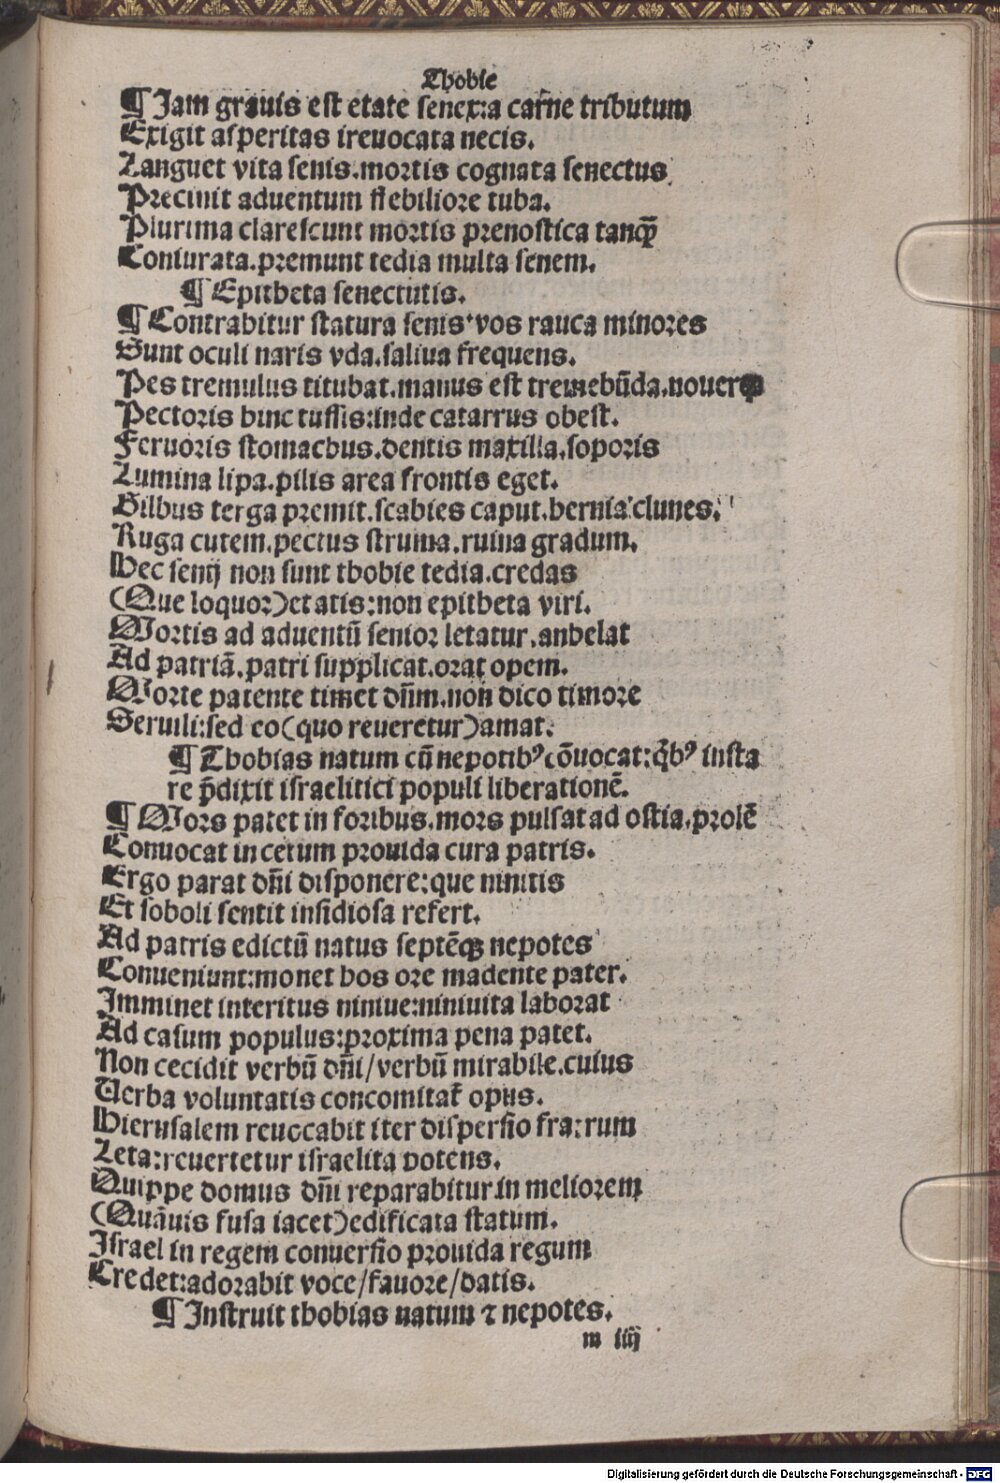 Thobie
¶ Jam grauis est etate senex:a carne tributum
Exigit asperitas ireuocata necis.
Languet vita senis.mortis cognata senectus
Precinit aduentum flebiliore tuba.
Plurima clarescunt mortis prenostica tanqꝫ
Coniurata.premunt tedia multa senem.
¶ Epitheta senectutis.
¶ Contrahitur statura senis.vos rauca minores
Sunt oculi naris vda.saliua frequens.
Pes tremulus titubat.manus est tremebūda.nouerca
Pectoris hinc tussis:inde catarrus obest.
Feruoris stomachus.dentis maxilla.soporis
Lumina lipa.pilis area frontis eget.
Gilbus terga premit.scabies caput.hernia clunes.
Ruga cutem.pectus struma.ruina gradum.
Hec senij non sunt thobie tedia.credas
(Que loquor)etatis:non epitheta viri.
Mortis ad aduentū senior letatur.anhelat
Ad patriā.patri supplicat.orat opem.
Morte patente timet dn̄m.non dico timore
Seruili:sed eo(quo reueretur)amat.
¶ Thobias natum cū nepotibꝰ cōuocat:qͥbꝰ insta
re p̄dixit israelitici populi liberationē.
¶ Mors patet in foribus.mors pulsat ad ostia.prolē
Conuocat in cetum prouida cura patris.
Ergo parat dn̄i disponere:que niniuitis
Et soboli sentit insidiosa refert.
Ad patris edictū natus septēqꝫ nepotes
Conueniunt:monet hos ore madente pater.
Imminet interitus niniue:niniuita laborat
Ad casum populus:proxima pena patet.
Non cecidit verbū dn̄i/verbū mirabile.cuius
Uerba voluntatis concomitat̄ opus.
Hierusalem reuocabit iter dispersio fratrum
Leta:reuertetur israelita potens.
Quippe domus dn̄i reparabitur.in meliorem
(Quāuis fusa iacet)edificata statum.
Israel in regem conuersio prouida regum
Credet:adorabit voce/fauore/datis.
¶ Instruit thobias natum ⁊ nepotes.
m iiij
Digitalisierung gefördert durch die Deutsche Forschungsgemeinschaft - DFG